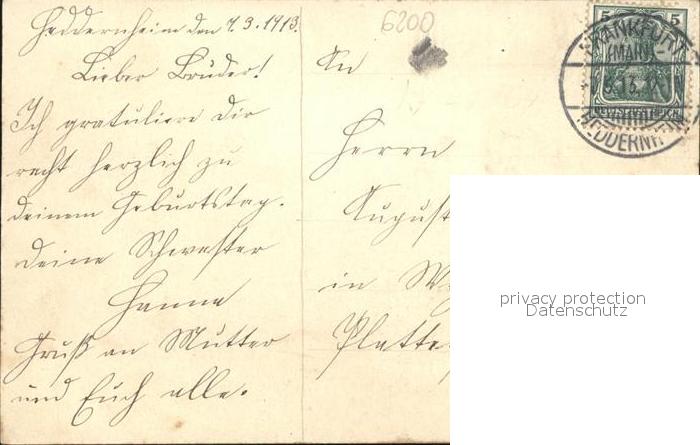 Heddernheim den 7.3.1913.
Lieber Bruder!
Ich gratuliere Dir
recht herzlich zu
deinem Geburtstag.
Deine Schwester
Hanna
Gruß an Mutter
und Euch alle.
6200
An
Herrn
August
in
Platte
5 5
FRANKFURT
(MAIN)
HEDDERNHEIM
privacy protection
Datenschutz